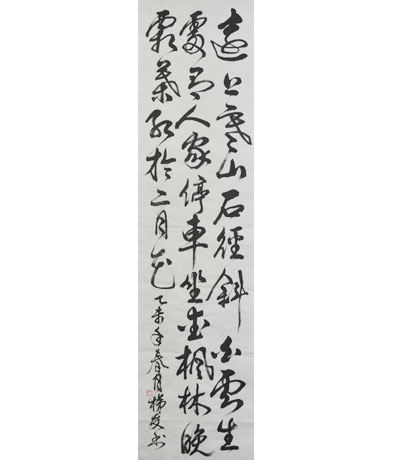 遠上寒山石徑斜白雲生
處有人家停車坐愛楓林晚
霜葉紅於二月花
乙未年春月